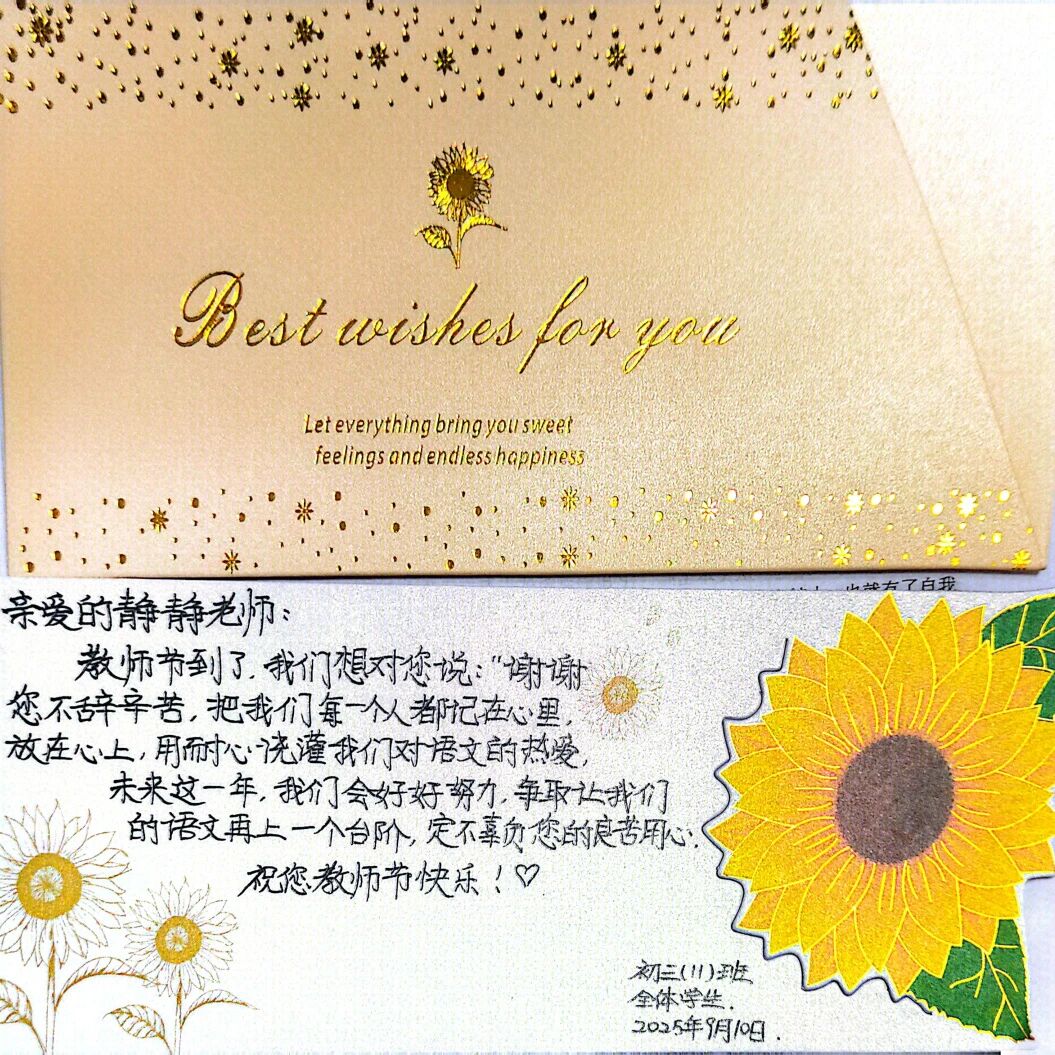 Best wishes for you
Let everything bring you sweet
feelings and endless happiness
也就有了自我
亲爱的静静老师：
教师节到了，我们想对您说："谢谢
您不辞辛苦，把我们每一个人都记在心里，
放在心上，用耐心浇灌我们对语文的热爱，
未来这一年，我们会好好努力，争取让我们
的语文再上一个台阶，定不辜负您的良苦用心．
祝您教师节快乐！♡
初三（11）班
全体学生．
2025年9月10日．